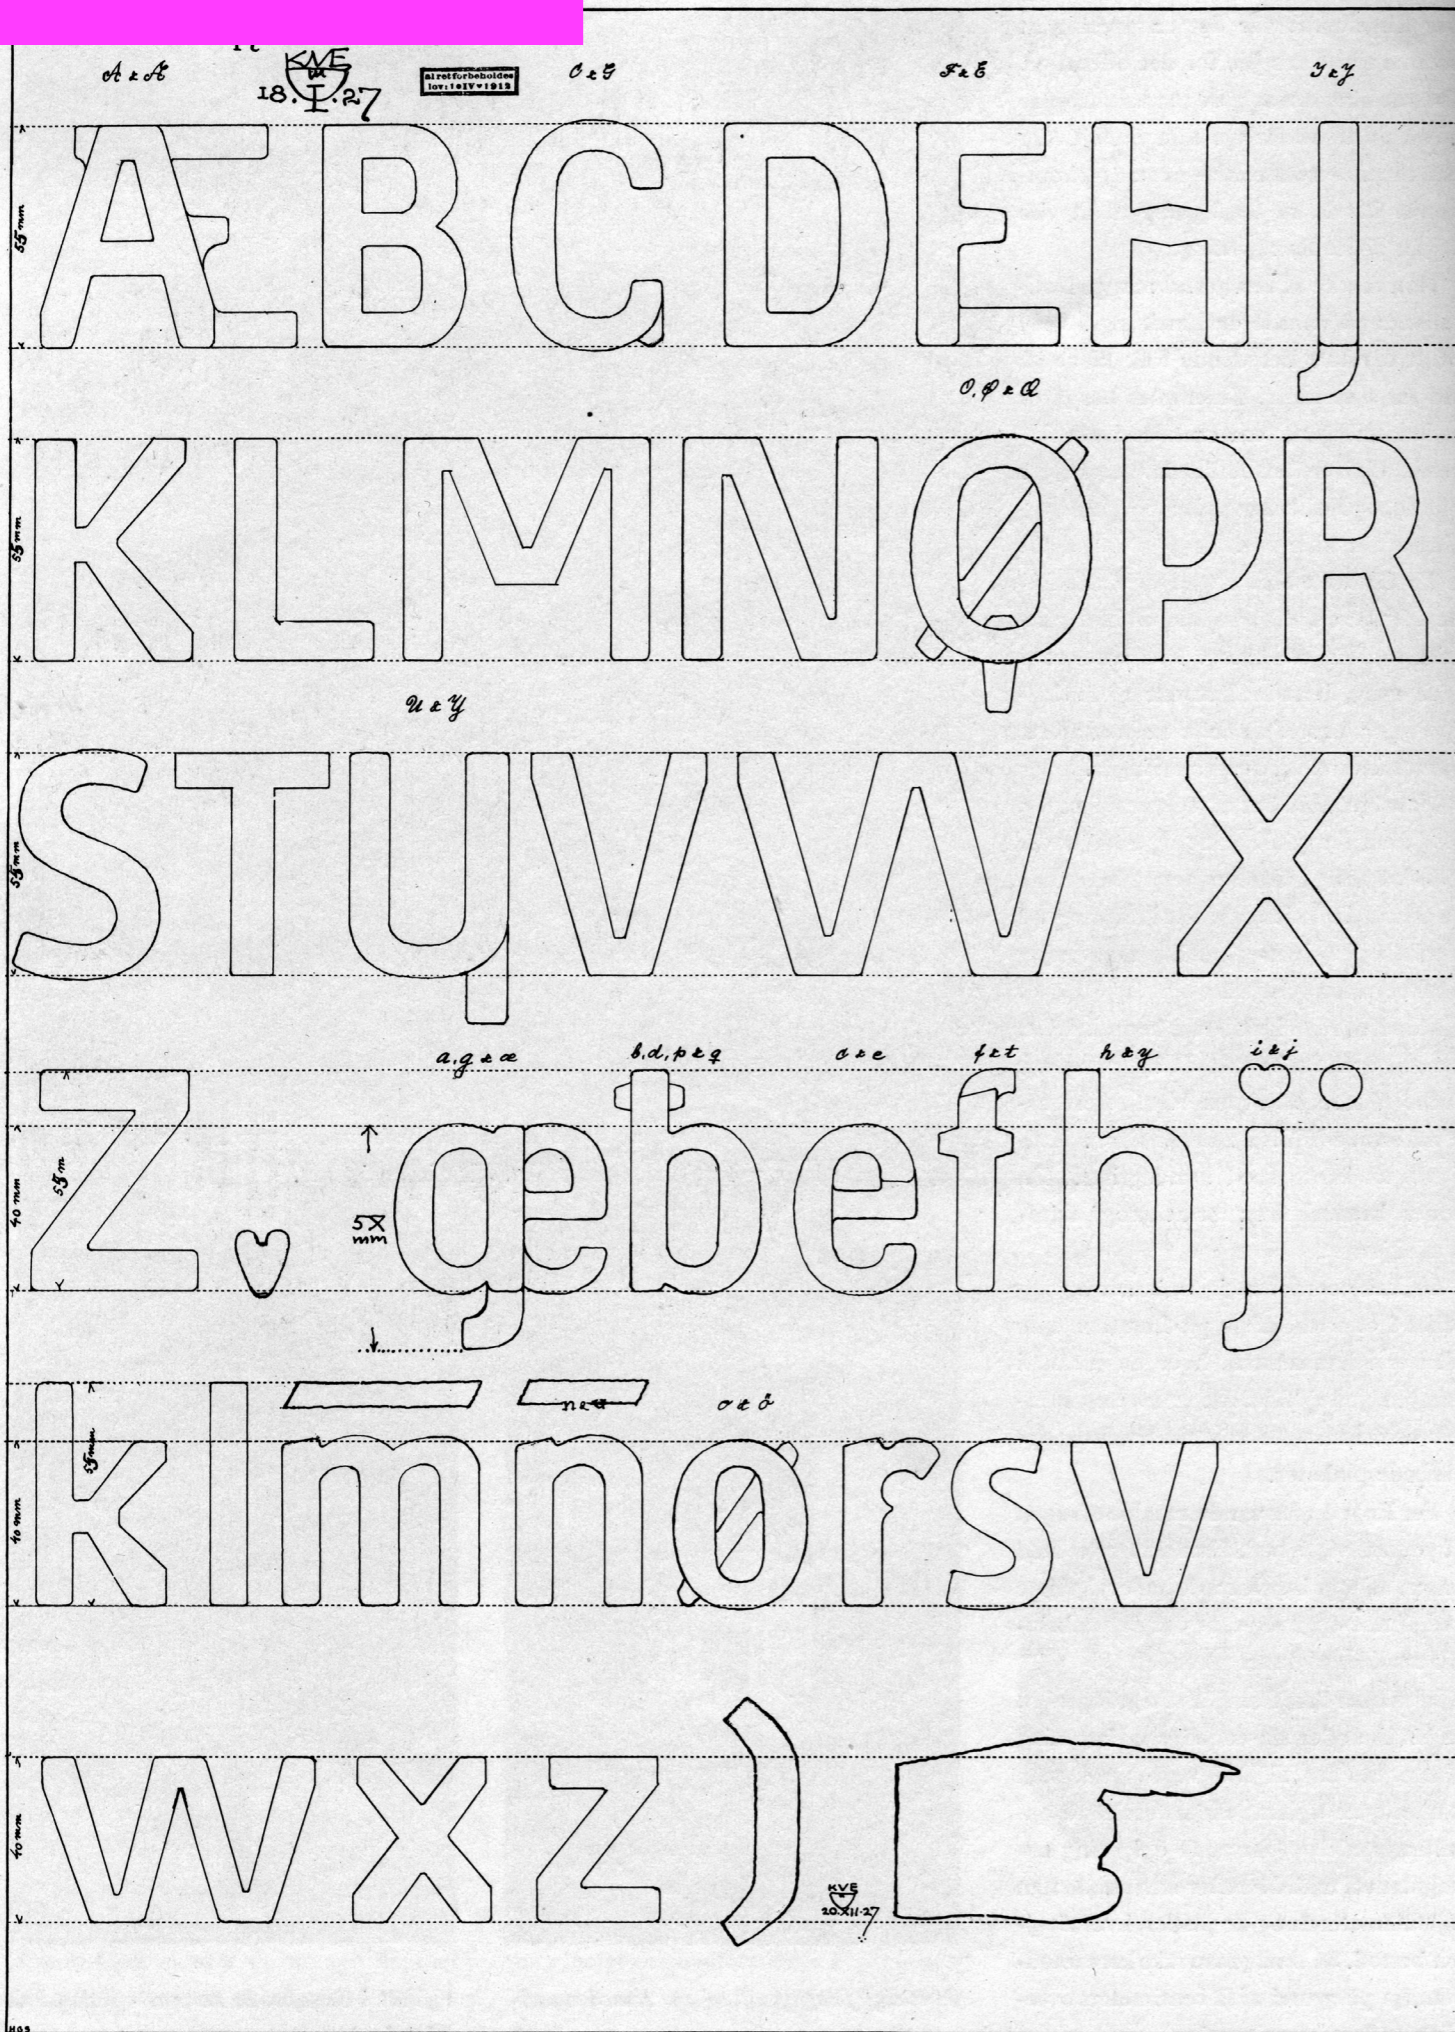 KVE
A & Æ
18.I.27
al ret forbeholdes
lov: 1•IV•1912
C & G
F & E
I & J
55 mm
ÆBCDEHJ
O, Ø & Q
55 mm
KLMNØPR
U & Y
55 mm
STUVWX
a, g & æ
b, d, p & q
c & e
f & t
h & y
i & j
40 mm
55 m
Z
5X mm
gæbefhj
neu
o & ø
40 mm
55 mm
klmnørsv
40 mm
wxz)
KVE
20.XII.27
HGS